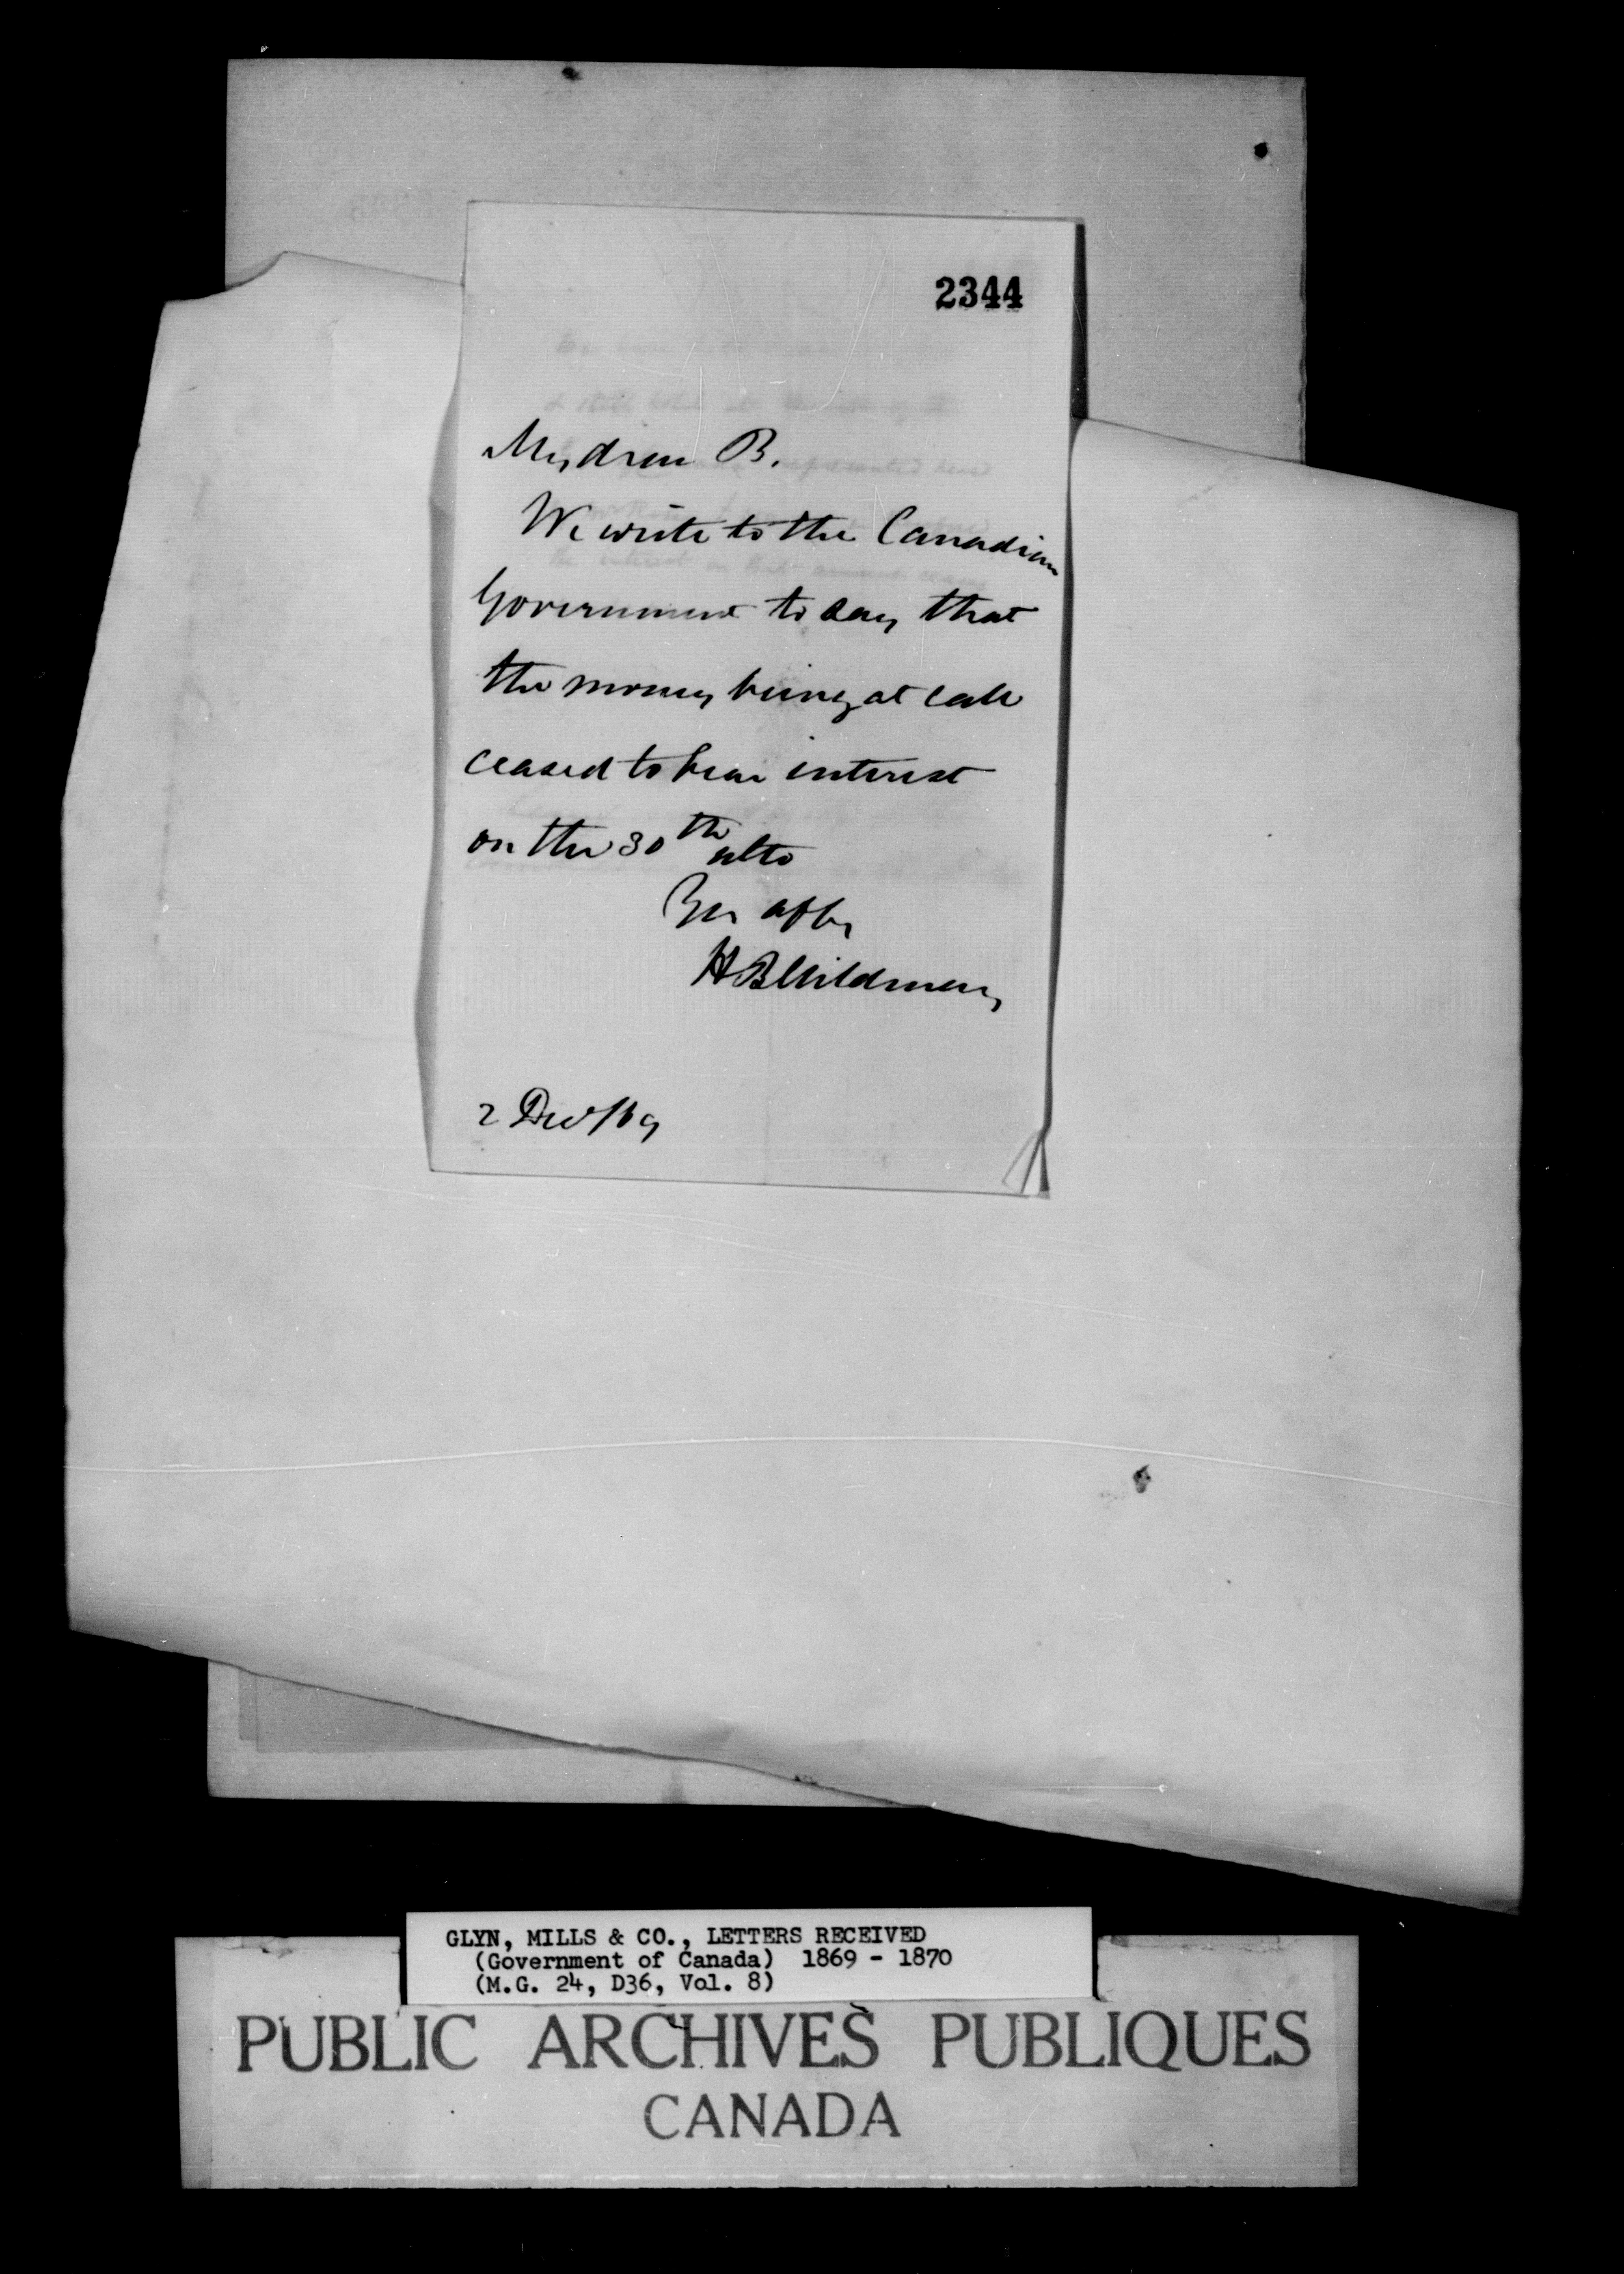 2344
My dear B.
We write to the Canadian
Government to day that
the money being at call
ceased to bear interest
on the 30th ulto
Yrs affly
HBMildmay
2 Dec/69
GLYN, MILLS & CO., LETTERS RECEIVED
(Government of Canada) 1869 - 1870
(M.G. 24, D36, Vol. 8)
PUBLIC ARCHIVES PUBLIQUES
CANADA